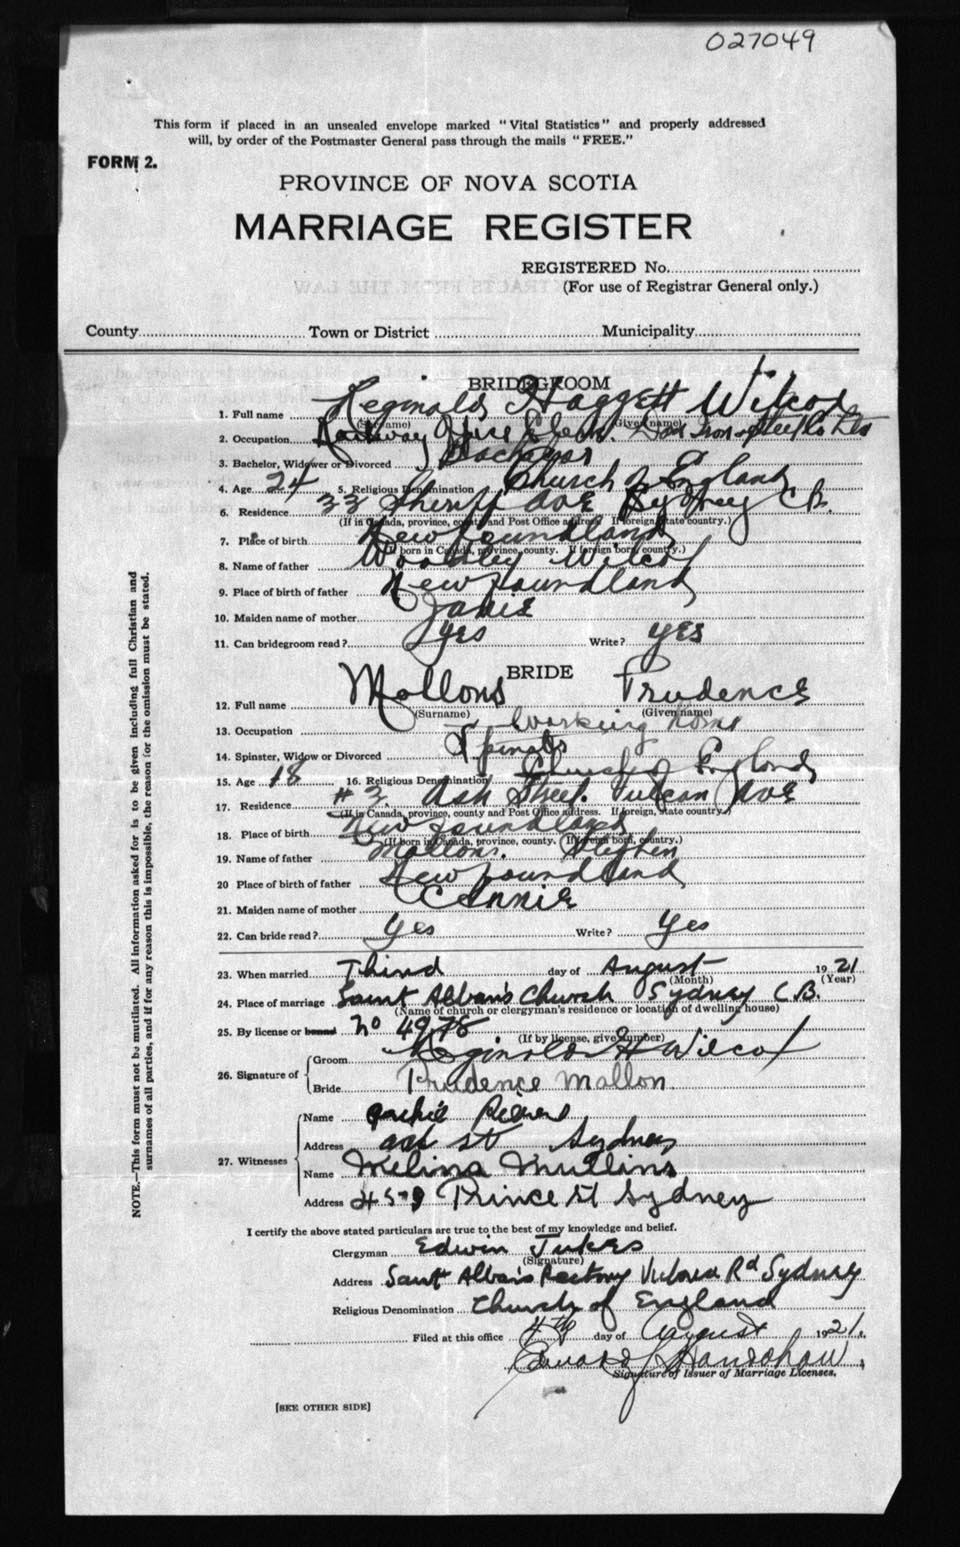 027049
This form if placed in an unsealed envelope marked "Vital Statistics" and properly addressed
will, by order of the Postmaster General pass through the mails "FREE."
FORM 2.
PROVINCE OF NOVA SCOTIA
MARRIAGE REGISTER
REGISTERED No.
(For use of Registrar General only.)
County Town or District Municipality
BRIDEGROOM
1. Full name Reginald Haggett Wilcox
(Surname) (Given name)
2. Occupation Railway Clerk. Dom Iron & Steel Co Ltd
3. Bachelor, Widower or Divorced Bachelor
4. Age 24 5. Religious Denomination Church of England
6. Residence 33 Sheriff Ave Sydney C.B.
(If in Canada, province, county and Post Office address. If foreign, state country.)
7. Place of birth Newfoundland
(If born in Canada, province, county. If foreign born, country.)
8. Name of father Wilcox
9. Place of birth of father Newfoundland
10. Maiden name of mother Janie
11. Can bridegroom read? Yes Write? Yes
BRIDE
12. Full name Mallons Prudence
(Surname) (Given name)
13. Occupation Working home
14. Spinster, Widow or Divorced Spinster
15. Age 18 16. Religious Denomination Church of England
17. Residence # 3 Ash Street Vulcan Ave
(If in Canada, province, county and Post Office address. If foreign, state country.)
18. Place of birth Newfoundland
(If born in Canada, province, county. If foreign born, country.)
19. Name of father Mallons. Stephen
20 Place of birth of father Newfoundland
21. Maiden name of mother Cannie
22. Can bride read? Yes Write? Yes
23. When married Third day of August 1921
(Month) (Year)
24. Place of marriage Saint Alban's Church Sydney C.B.
(Name of church or clergyman's residence or location of dwelling house)
25. By license or banns no 4978
(If by license, give number)
26. Signature of
Groom Reginald H Wilcox
Bride Prudence Mallon
27. Witnesses
Name
Address Ash St Sydney
Name Melina Mullins
Address Prince St Sydney
I certify the above stated particulars are true to the best of my knowledge and belief.
Clergyman Edwin Jukes
(Signature)
Address Saint Alban's Rectory Victoria Rd Sydney
Religious Denomination Church of England
Filed at this office 4th day of August 1921.
Signature of Issuer of Marriage Licenses.
[SEE OTHER SIDE]
NOTE.—This form must not be mutilated. All information asked for is to be given including full Christian and
surnames of all parties, and if for any reason this is impossible, the reason for the omission must be stated.